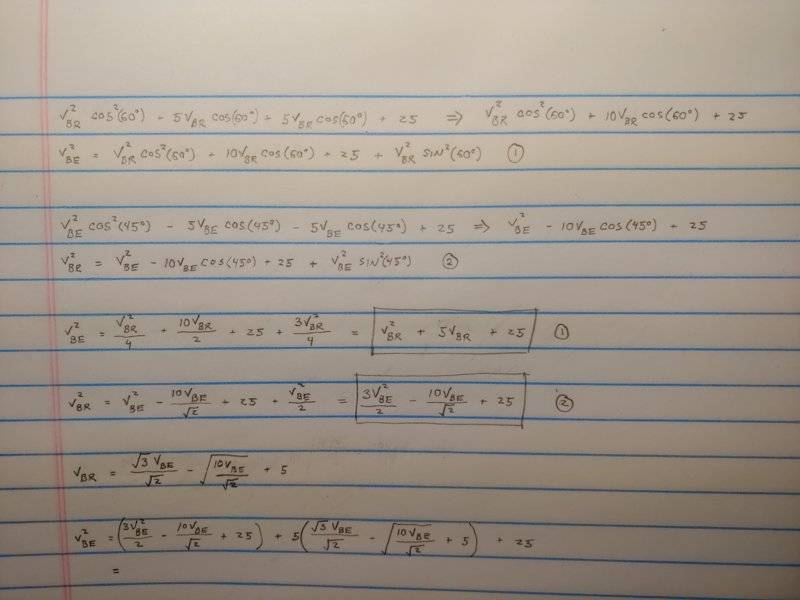 V_BR² cos²(60°) + 5V_BR cos(60°) + 5V_BR cos(60°) + 25 ⇒ V_BR² cos²(60°) + 10V_BR cos(60°) + 25
V_BE² = V_BR² cos²(60°) + 10V_BR cos(60°) + 25 + V_BR² SIN²(60°) ①
V_BE² cos²(45°) - 5V_BE cos(45°) - 5V_BE cos(45°) + 25 ⇒ V_BE² - 10V_BE cos(45°) + 25
V_BR² = V_BE² - 10V_BE cos(45°) + 25 + V_BE² SIN²(45°) ②
V_BE² = V_BR²/4 + 10V_BR/2 + 25 + 3V_BR²/4 = V_BR² + 5V_BR + 25 ①
V_BR² = V_BE² - 10V_BE/√2 + 25 + V_BE²/2 = 3V_BE²/2 - 10V_BE/√2 + 25 ②
V_BR = √3 V_BE/√2 - √(10V_BE/√2) + 5
V_BE² = (3V_BE²/2 - 10V_BE/√2 + 25) + 5(√3 V_BE/√2 - √(10V_BE/√2 + 5)) + 25
=